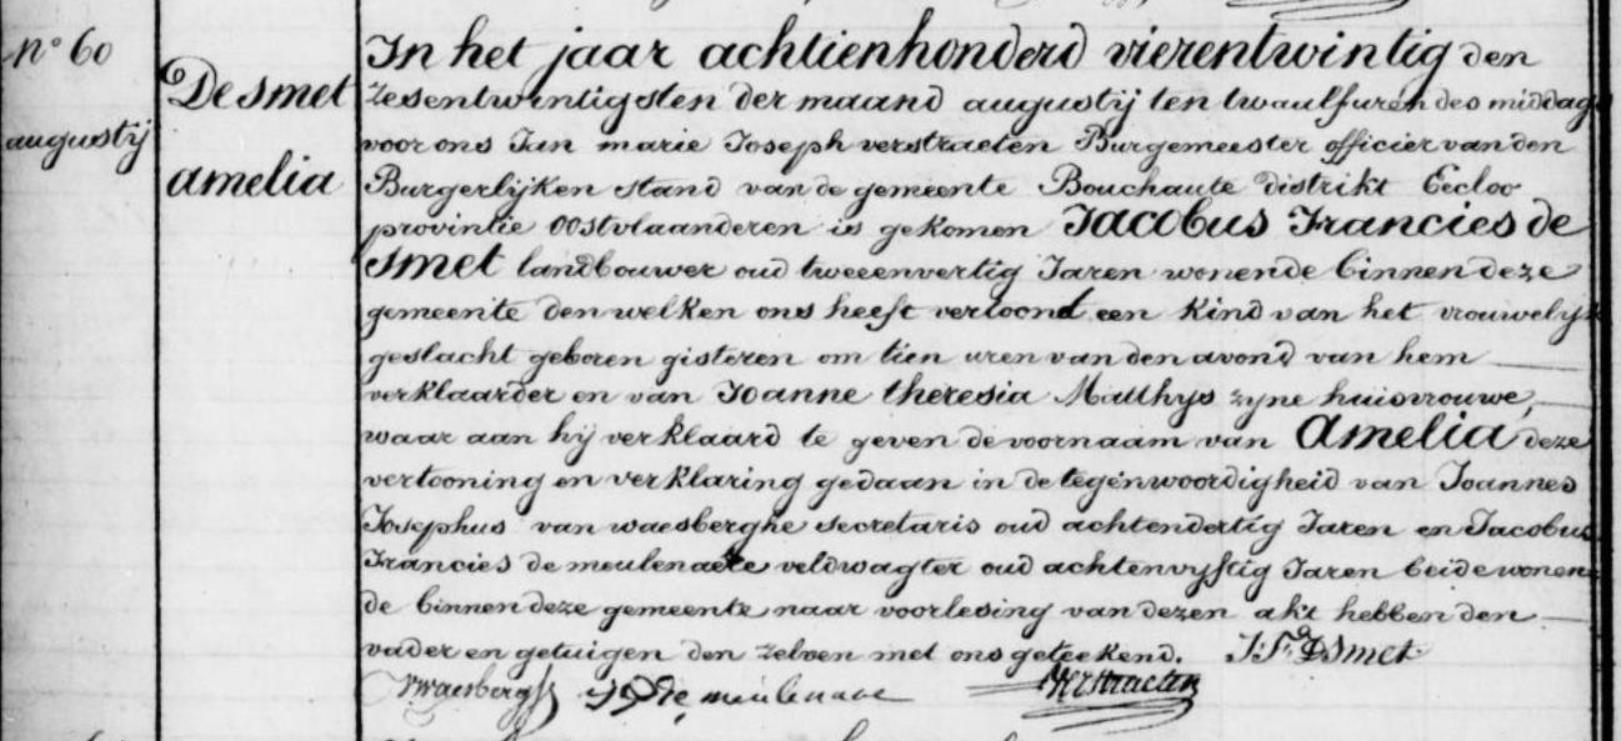 N° 60
augustij
De smet
amelia
In het jaar achtienhonderd vierentwintig den
zesentwintigsten der maand augustij ten twaalf uren des middags
voor ons Jan marie Joseph verstraeten Burgemeester officier van den
Burgerlijken stand van de gemeente Bouchaute distrikt Eecloo
provintie oostvlaanderen is gekomen Jacobus Francies de
smet landbouwer oud tweeenvertig Jaren wonende binnen deze
gemeente den welken ons heeft vertoond een kind van het vrouwelyk
geslacht geboren gisteren om tien uren van den avond van hem
verklaarder en van Joanne theresia Matthys zyne huisvrouwe,
waar aan hij verklaard te geven de voornaam van Amelia deze
vertooning en verklaring gedaan in de tegenwoordigheid van Joannes
Josephus van waesberghe secretaris oud achtendertig Jaren en Jacobus
Francies de meulenaere veldwagter oud achtenvyftig Jaren beide wonen
de binnen deze gemeente naar voorlesing van dezen akt hebben den
vader en getuigen den zelven met ons geteekend. J:F: DSmet
Vwaesbergh JF De meulenaere Verstraeten